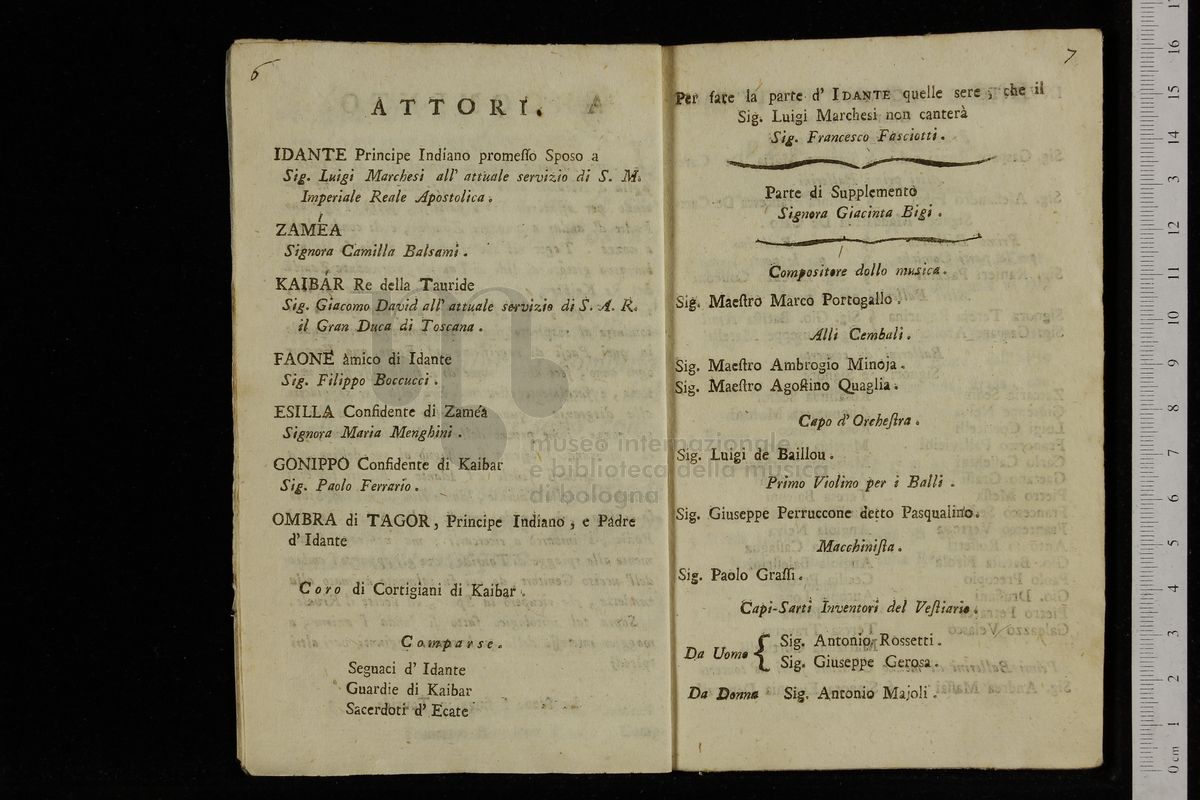 6
ATTORI.
IDANTE Principe Indiano promeſſo Sposo a
Sig. Luigi Marchesi all' attuale servizio di S. M.
Imperiale Reale Apostolica.
ZAMÉA
Signora Camilla Balsami.
KAIBAR Re della Tauride
Sig. Giacomo David all' attuale servizio di S. A. R.
il Gran Duca di Toscana.
FAONE amico di Idante
Sig. Filippo Boccucci.
ESILLA Confidente di Zaméa
Signora Maria Menghini.
GONIPPO Confidente di Kaibar
Sig. Paolo Ferrario.
OMBRA di TAGOR, Principe Indiano, e Padre
d' Idante
Coro di Cortigiani di Kaibar.
Comparse.
Seguaci d' Idante
Guardie di Kaibar
Sacerdoti d' Ecate
7
Per fare la parte d' IDANTE quelle sere, che il
Sig. Luigi Marchesi non canterà
Sig. Francesco Fasciotti.
Parte di Supplemento
Signora Giacinta Bigi.
Compositore dollo musica.
Sig. Maeſtro Marco Portogallo.
Alli Cembali.
Sig. Maeſtro Ambrogio Minoja.
Sig. Maeſtro Agoſtino Quaglia.
Capo d' Orcheſtra.
Sig. Luigi de Baillou.
Primo Violino per i Balli.
Sig. Giuseppe Perruccone detto Pasqualino.
Macchiniſta.
Sig. Paolo Graſſi.
Capi-Sarti Inventori del Veſtiario.
Da Uomo { Sig. Antonio Rossetti.
Sig. Giuseppe Cerosa.
Da Donna Sig. Antonio Majoli.
museo internazionale
e biblioteca della musica
di bologna
0 cm 1 2 3 4 5 6 7 8 9 10 11 12 13 14 15 16 17